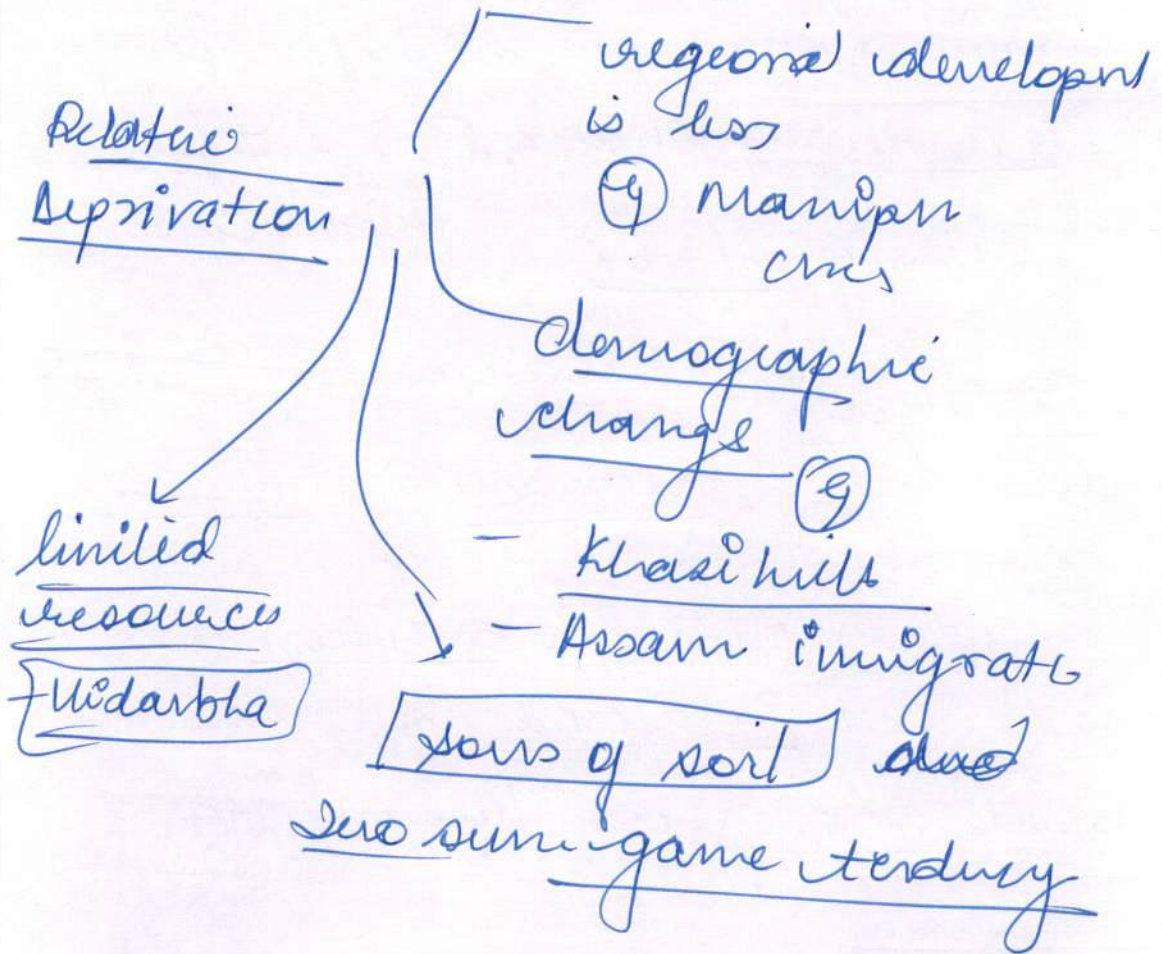 Relative
Deprivation
regional developmt
is less
eg Manipur
crises
demographic
change eg
- Khasi hills
- Assam immigrats
limited
resources
- Vidarbha
sons of soil and
Zero sum game tendency